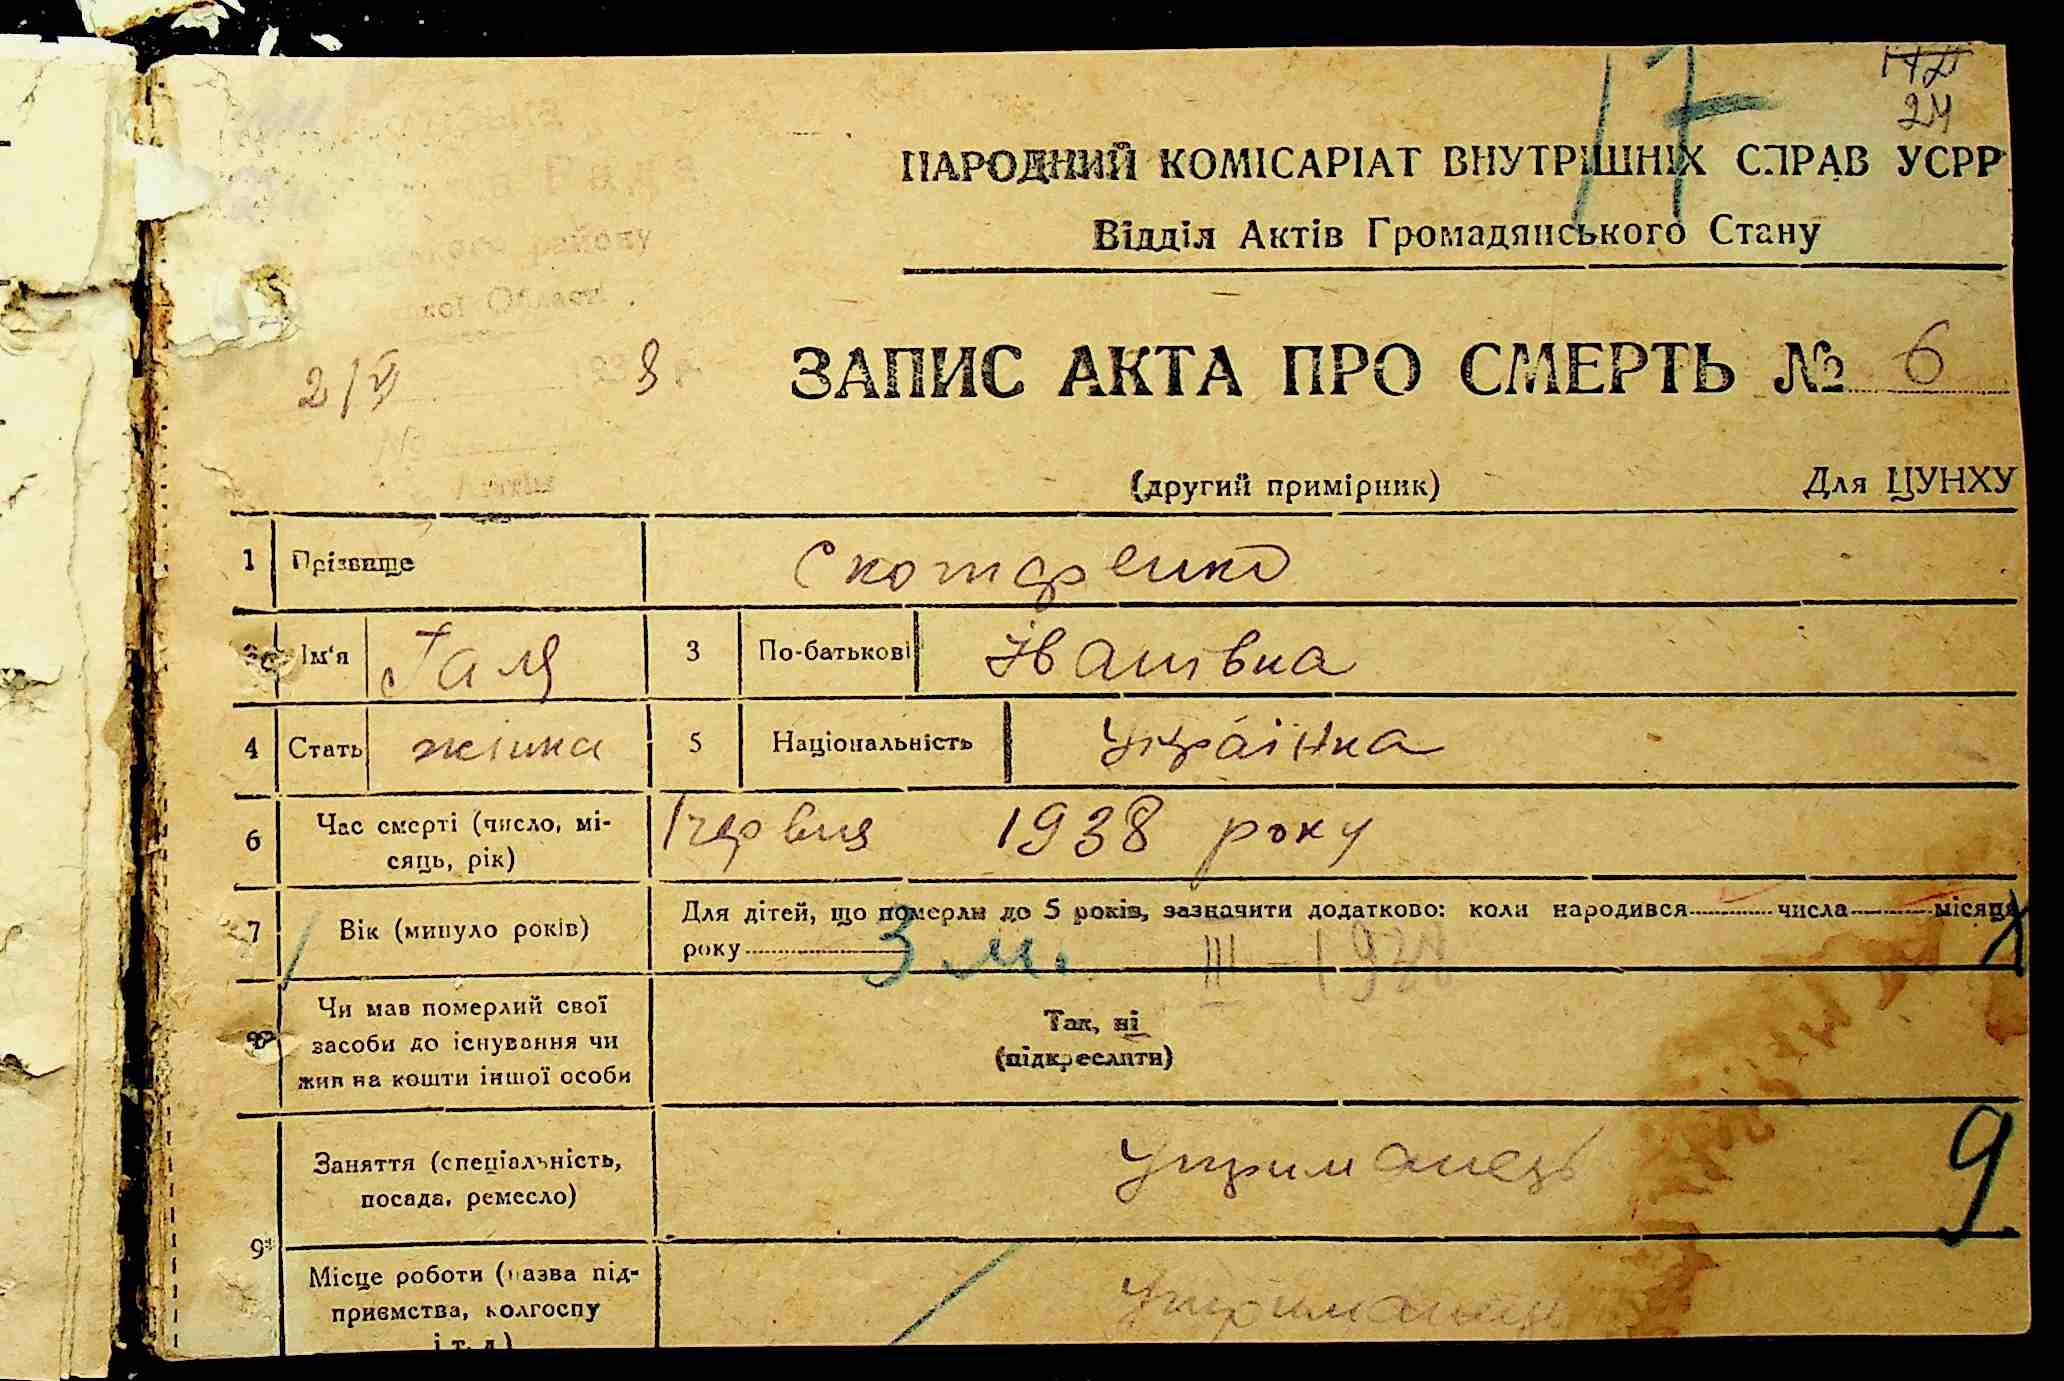 17
24
НАРОДНИЙ КОМІСАРІАТ ВНУТРІШНІХ СПРАВ УСРР
Відділ Актів Громадянського Стану
Рада
району
Області
2/VI 1938 р.
ЗАПИС АКТА ПРО СМЕРТЬ № 6
№
(другий примірник) Для ЦУНХУ
1 Прізвище Скотаренко
Ім'я Галя 3 По-батькові Іванівна
4 Стать жінка 5 Національність Українка
6 Час смерті (число, мі-
сяць, рік) 1 червня 1938 року
7 Вік (минуло років) Для дітей, що померли до 5 років, зазначити додатково: коли народився числа місяця
року 3 м. III - 1938
8 Чи мав померлий свої
засоби до існування чи
жив на кошти іншої особи
Так, ні
(підкреслити)
Заняття (спеціальність,
посада, ремесло) Утриманець 9
9
Місце роботи (назва під-
приємства, колгоспу
і т. д.) Утриманець